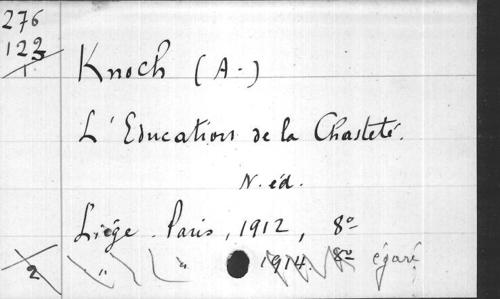 276
123
1
Knoch (A-)
L'Education de la Chasteté.
N. éd.
Liége. Paris, 1912, 8°
2 " " 1914. 8° égaré